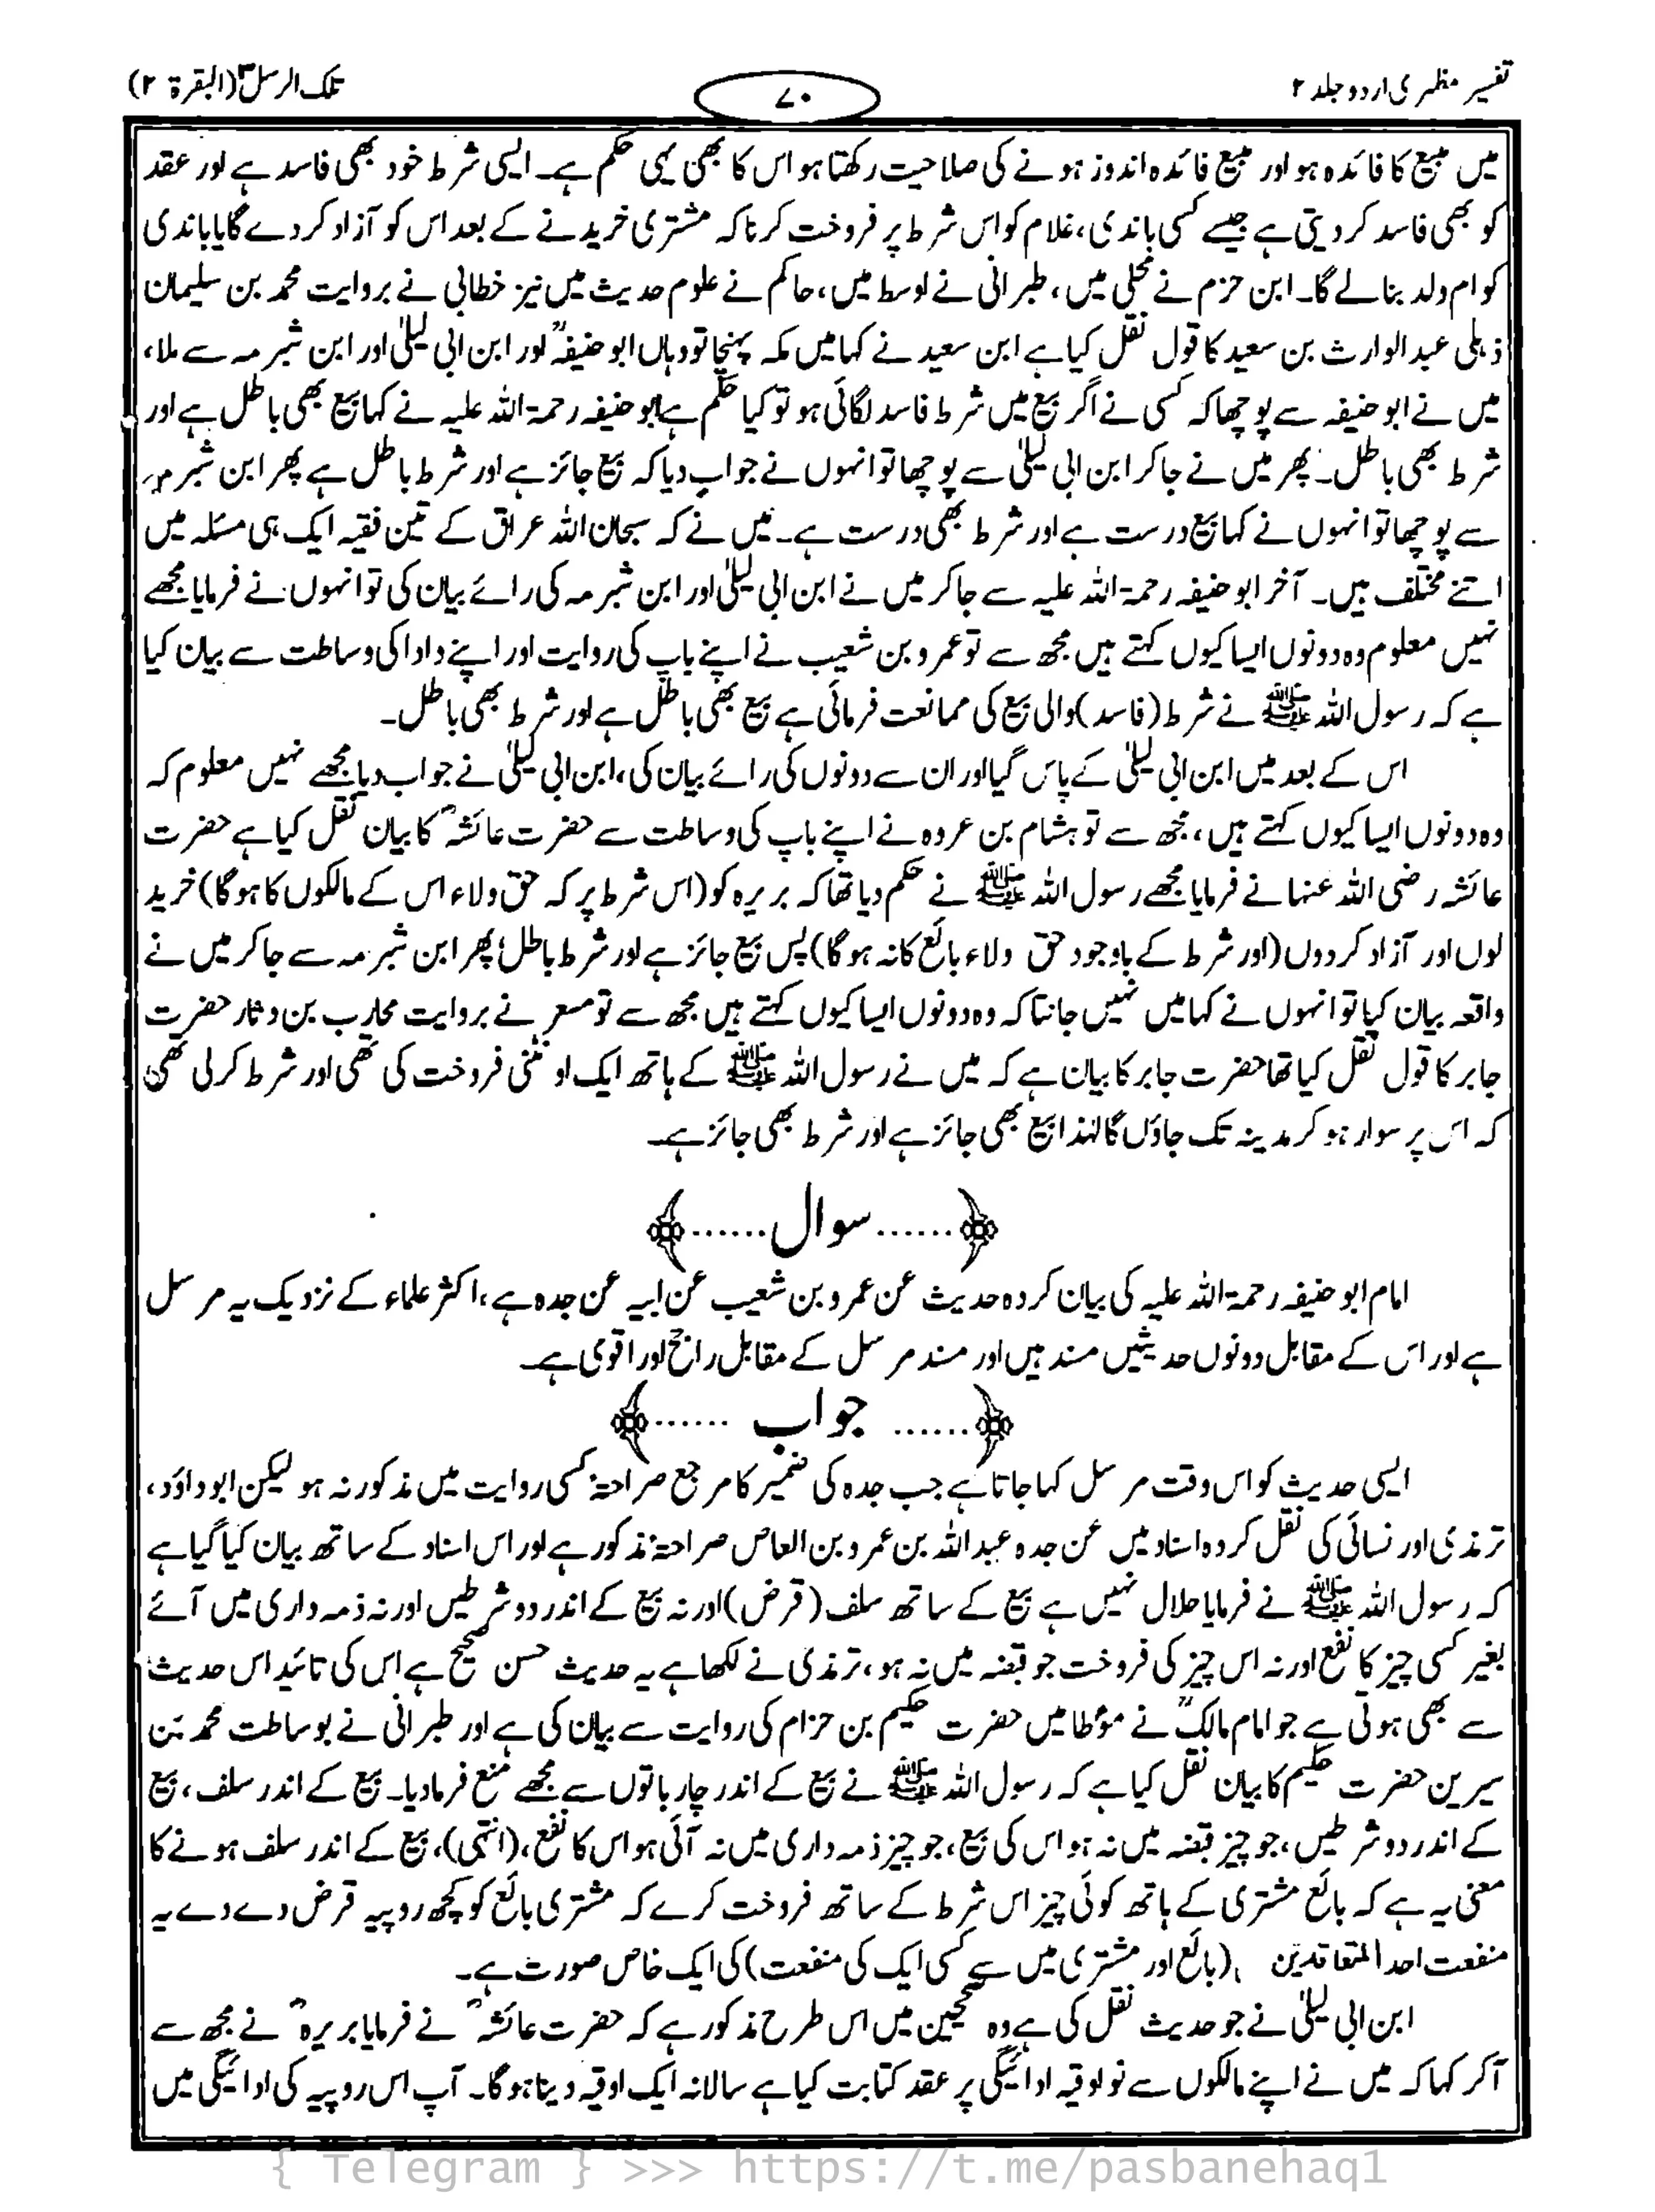 تفسیر مظہری اردو جلد ۲
۷۰
تلک الرسل ۳ (البقرۃ ۲)
میں مبیع کا فائدہ ہو اور مبیع فائدہ اندوز ہونے کی صلاحیت رکھتا ہو اس کا بھی یہی حکم ہے۔ ایسی شرط خود بھی فاسد ہے اور عقد
کو بھی فاسد کر دیتی ہے جیسے کسی باندی، غلام کو اس شرط پر فروخت کرنا کہ مشتری خریدنے کے بعد اس کو آزاد کر دے گا یا باندی
کو ام ولد بنا لے گا۔ ابن حزم نے محلی میں، طبرانی نے اوسط میں، حاکم نے علوم حدیث میں نیز خطابی نے بروایت محمد بن سلیمان
ذہلی عبدالوارث بن سعید کا قول نقل کیا ہے ابن سعید نے کہا میں مکہ پہنچا تو وہاں ابو حنیفہؒ اور ابن ابی لیلیٰ اور ابن شبرمہ سے ملا،
میں نے ابو حنیفہ سے پوچھا کہ کسی نے اگر بیع میں شرط فاسد لگائی ہو تو کیا حکم ہے ابو حنیفہ رحمۃ اللہ علیہ نے کہا بیع بھی باطل ہے اور
شرط بھی باطل۔ پھر میں نے جا کر ابن ابی لیلیٰ سے پوچھا تو انہوں نے جواب دیا کہ بیع جائز ہے اور شرط باطل ہے پھر ابن شبرمہ
سے پوچھا تو انہوں نے کہا بیع درست ہے اور شرط بھی درست ہے۔ میں نے کہ سبحان اللہ عراق کے تین فقیہ ایک ہی مسئلہ میں
اتنے مختلف ہیں۔ آخر ابو حنیفہ رحمۃ اللہ علیہ سے جا کر میں نے ابن ابی لیلیٰ اور ابن شبرمہ کی رائے بیان کی تو انہوں نے فرمایا مجھے
نہیں معلوم وہ دونوں ایسا کیوں کہتے ہیں مجھ سے تو عمرو بن شعیب نے اپنے باپ کی روایت اور اپنے دادا کی وساطت سے بیان کیا
ہے کہ رسول اللہ ﷺ نے شرط (فاسد) والی بیع کی ممانعت فرمائی ہے بیع بھی باطل ہے اور شرط بھی باطل۔
اس کے بعد میں ابن ابی لیلیٰ کے پاس گیا اور ان سے دونوں کی رائے بیان کی، ابن ابی لیلیٰ نے جواب دیا مجھے نہیں معلوم کہ
وہ دونوں ایسا کیوں کہتے ہیں، مجھ سے تو ہشام بن عروہ نے اپنے باپ کی وساطت سے حضرت عائشہؓ کا بیان نقل کیا ہے حضرت
عائشہ رضی اللہ عنہا نے فرمایا مجھے رسول اللہ ﷺ نے حکم دیا تھا کہ بریرہ کو (اس شرط پر کہ حق ولاء اس کے مالکوں کا ہوگا) خرید
لوں اور آزاد کر دوں (اور شرط کے باوجود حق ولاء بائع کا نہ ہوگا) پس بیع جائز ہے اور شرط باطل؛ پھر ابن شبرمہ سے جا کر میں نے
واقعہ بیان کیا تو انہوں نے کہا میں نہیں جانتا کہ وہ دونوں ایسا کیوں کہتے ہیں مجھ سے تو مسعر نے بروایت محارب بن دثار حضرت
جابر کا قول نقل کیا تھا حضرت جابر کا بیان ہے کہ میں نے رسول اللہ ﷺ کے ہاتھ ایک اونٹنی فروخت کی تھی اور شرط کر لی تھی
کہ اس پر سوار ہو کر مدینہ تک جاؤں گا لہٰذا بیع بھی جائز ہے اور شرط بھی جائز ہے۔
﴿......سوال......﴾
امام ابو حنیفہ رحمۃ اللہ علیہ کی بیان کردہ حدیث عن عمرو بن شعیب عن ابیہ عن جدہ ہے، اکثر علماء کے نزدیک یہ مرسل
ہے اور اس کے مقابل دونوں حدیثیں مسند ہیں اور مسند مرسل کے مقابل راجح اور اقوی ہے۔
﴿...... جواب ......﴾
ایسی حدیث کو اس وقت مرسل کہا جاتا ہے جب جدہ کی ضمیر کا مرجع صراحۃً کسی روایت میں مذکور نہ ہو لیکن ابوداؤد،
ترمذی اور نسائی کی نقل کردہ اسناد میں عن جدہ عبداللہ بن عمرو بن العاص صراحۃً مذکور ہے اور اس اسناد کے ساتھ بیان کیا گیا ہے
کہ رسول اللہ ﷺ نے فرمایا حلال نہیں ہے بیع کے ساتھ سلف (قرض) اور نہ بیع کے اندر دو شرطیں اور نہ ذمہ داری میں آئے
بغیر کسی چیز کا نفع اور نہ اس چیز کی فروخت جو قبضہ میں نہ ہو، ترمذی نے لکھا ہے یہ حدیث حسن صحیح ہے اس کی تائید اس حدیث
سے بھی ہوتی ہے جو امام مالکؒ نے مؤطا میں حضرت حکیم بن حزام کی روایت سے بیان کی ہے اور طبرانی نے بوساطت محمد بن
سیرین حضرت حکیم کا بیان نقل کیا ہے کہ رسول اللہ ﷺ نے بیع کے اندر چار باتوں سے مجھے منع فرمادیا۔ بیع کے اندر سلف، بیع
کے اندر دو شرطیں، جو چیز قبضہ میں نہ ہو اس کی بیع، جو چیز ذمہ داری میں نہ آئی ہو اس کا نفع، (انتہی)، بیع کے اندر سلف ہونے کا
معنی یہ ہے کہ بائع مشتری کے ہاتھ کوئی چیز اس شرط کے ساتھ فروخت کرے کہ مشتری بائع کو کچھ روپیہ قرض دے دے یہ
منفعت احد المتعاقدین (بائع اور مشتری میں سے کسی ایک کی منفعت) کی ایک خاص صورت ہے۔
ابن ابی لیلیٰ نے جو حدیث نقل کی ہے وہ صحیحین میں اس طرح مذکور ہے کہ حضرت عائشہؓ نے فرمایا بریرہؓ نے مجھ سے
آکر کہا کہ میں نے اپنے مالکوں سے نو اوقیہ ادائیگی پر عقد کتابت کیا ہے سالانہ ایک اوقیہ دینا ہوگا۔ آپ اس روپیہ کی ادائیگی میں
{ Telegram } >>> https://t.me/pasbanehaq1